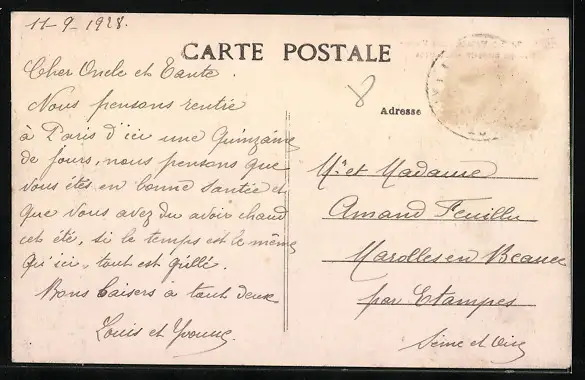 11-9-1928.
CARTE POSTALE
Cher Oncle et Tante.
Nous pensons rentré
à Paris d'ici une Quinzaine
de jours, nous pensons que
vous êtes en bonne Santée et
que vous avez du avoir chaud
cet été, si le temps est le même
qu'ici, tout est grillé.
Bons Baisers à tout deux
Louis et Yvonne.
Adresse
Mr et Madame
Amand Feuillu
Marolles en Beauce
par Etampes
Seine et Oise